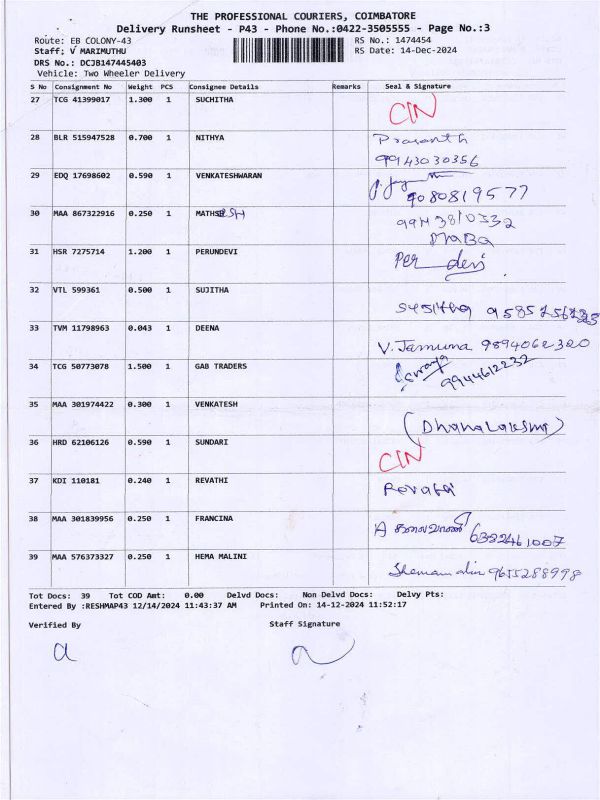 THE PROFESSIONAL COURIERS, COIMBATORE
Delivery Runsheet - P43 - Phone No.:0422-3505555 - Page No.:3
Route: EB COLONY-43 RS No.: 1474454
Staff; V MARIMUTHU RS Date: 14-Dec-2024
DRS No.: DCJB147445403
Vehicle: Two Wheeler Delivery
S No Consignment No Weight PCS Consignee Details Remarks Seal & Signature
27 TCG 41399017 1.300 1 SUCHITHA CIN
28 BLR 515947528 0.700 1 NITHYA Prasanth
9943030356
29 EDQ 17698602 0.590 1 VENKATESHWARAN 9080819577
30 MAA 867322916 0.250 1 MATHSESH
31 HSR 7275714 1.200 1 PERUNDEVI Per devi
32 VTL 599361 0.500 1 SUJITHA
33 TVM 11798963 0.043 1 DEENA V. Jamuna 9894062320
34 TCG 50773078 1.500 1 GAB TRADERS 9944612232
35 MAA 301974422 0.300 1 VENKATESH (Dhanalakshmi)
36 HRD 62106126 0.590 1 SUNDARI CIN
37 KDI 110181 0.240 1 REVATHI
38 MAA 301839956 0.250 1 FRANCINA
39 MAA 576373327 0.250 1 HEMA MALINI 9655288998
Tot Docs: 39 Tot COD Amt: 0.00 Delvd Docs: Non Delvd Docs: Delvy Pts:
Entered By :RESHMAP43 12/14/2024 11:43:37 AM Printed On: 14-12-2024 11:52:17
Verified By Staff Signature